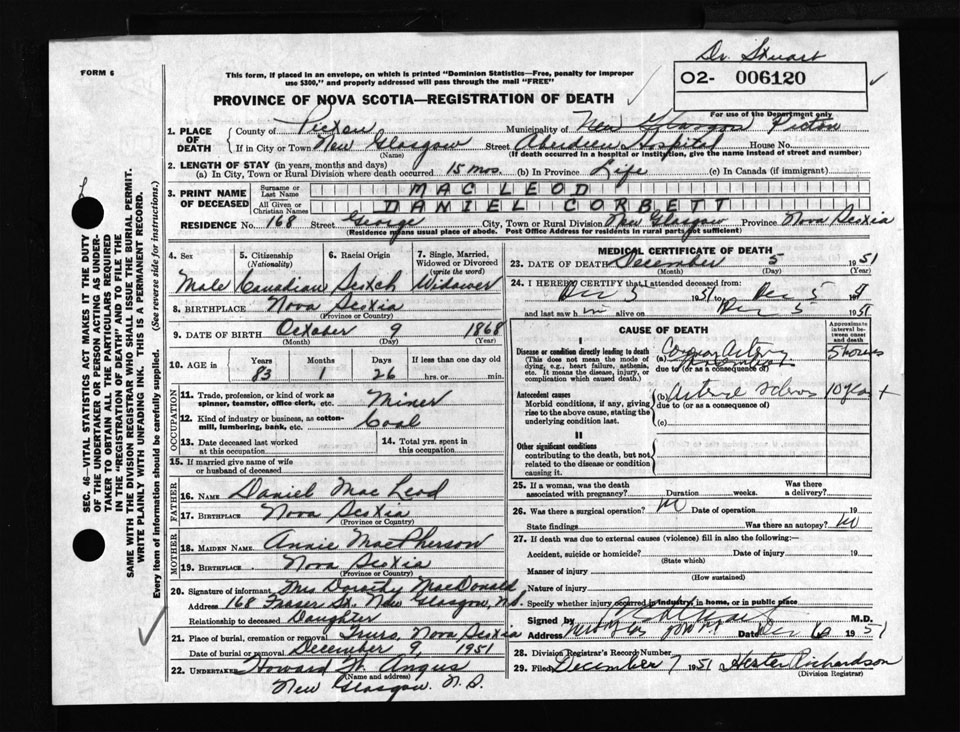 Dr. Stuart
FORM 6
This form, if placed in an envelope, on which is printed "Dominion Statistics—Free, penalty for improper use $300," and properly addressed will pass through the mail "FREE"
O2- 006120
For use of the Department only
PROVINCE OF NOVA SCOTIA—REGISTRATION OF DEATH
SEC. 46—VITAL STATISTICS ACT MAKES IT THE DUTY
OF THE UNDERTAKER OR PERSON ACTING AS UNDER-
TAKER TO OBTAIN ALL THE PARTICULARS REQUIRED
IN THE "REGISTRATION OF DEATH" AND TO FILE THE
SAME WITH THE DIVISION REGISTRAR WHO SHALL ISSUE THE BURIAL PERMIT.
WRITE PLAINLY WITH UNFADING INK. THIS IS A PERMANENT RECORD.
Every item of information should be carefully supplied. (See reverse side for instructions.)
1. PLACE OF DEATH
County of Pictou Municipality of New Glasgow Pictou
If in City or Town New Glasgow Street Aberdeen Hospital House No.
(Name) (If death occurred in a hospital or institution, give the name instead of street and number)
2. LENGTH OF STAY (in years, months and days)
(a) In City, Town or Rural Division where death occurred 15 mos. (b) In Province Life (c) In Canada (if immigrant)
3. PRINT NAME OF DECEASED
Surname or Last Name MAC LEOD
All Given or Christian Names DANIEL CORBETT
RESIDENCE No. 168 Street George City, Town or Rural Division New Glasgow Province Nova Scotia
(Residence means usual place of abode. Post Office Address for residents in rural parts not sufficient)
4. Sex 5. Citizenship (Nationality) 6. Racial Origin 7. Single, Married, Widowed or Divorced (write the word)
Male Canadian Scotch Widower
8. BIRTHPLACE Nova Scotia
(Province or Country)
9. DATE OF BIRTH October 9 1868
(Month) (Day) (Year)
10. AGE Years Months Days If less than one day old
83 1 26 hrs. or min.
OCCUPATION
11. Trade, profession, or kind of work as spinner, teamster, office clerk, etc. Miner
12. Kind of industry or business, as cotton-mill, lumbering, bank, etc. Coal
13. Date deceased last worked at this occupation 14. Total yrs. spent in this occupation
15. If married give name of wife or husband of deceased
FATHER
16. NAME Daniel MacLeod
17. BIRTHPLACE Nova Scotia
(Province or Country)
MOTHER
18. MAIDEN NAME. Annie MacPherson
19. BIRTHPLACE Nova Scotia
(Province or Country)
20. Signature of informant Mrs Dorothy MacDonald
Address 168 Fraser St. New Glasgow, N.S.
Relationship to deceased Daughter
21. Place of burial, cremation or removal Truro, Nova Scotia
Date of burial or removal December 9, 1951
22. UNDERTAKER Howard W. Angus
(Name and address)
New Glasgow. N.S.
MEDICAL CERTIFICATE OF DEATH
23. DATE OF DEATH December 5 1951
(Month) (Day) (Year)
24. I HEREBY CERTIFY that I attended deceased from:
Dec 5 1951 to Dec 5 1951
and last saw him alive on Dec 5 1951
CAUSE OF DEATH
Approximate interval between onset and death
I
Disease or condition directly leading to death
(This does not mean the mode of dying, e.g., heart failure, asthenia, etc. It means the disease, injury, or complication which caused death.)
(a) Coronary Artery
due to (or as a consequence of)
5 hours
Antecedent causes
Morbid conditions, if any, giving rise to the above cause, stating the underlying condition last.
(b)
due to (or as a consequence of)
10 years +
(c)
II
Other significant conditions
contributing to the death, but not related to the disease or condition causing it.
25. If a woman, was the death associated with pregnancy? Duration weeks. Was there a delivery?
26. Was there a surgical operation? No Date of operation 19
State findings Was there an autopsy? No
27. If death was due to external causes (violence) fill in also the following:—
Accident, suicide or homicide? Date of injury 19
(State which)
Manner of injury
(How sustained)
Nature of injury
Specify whether injury occurred in industry, in home, or in public place
Signed by M.D.
Address Date Dec 6 1951
28. Division Registrar's Record Number
29. Filed December 7 1951 Hester Richardson
(Division Registrar)